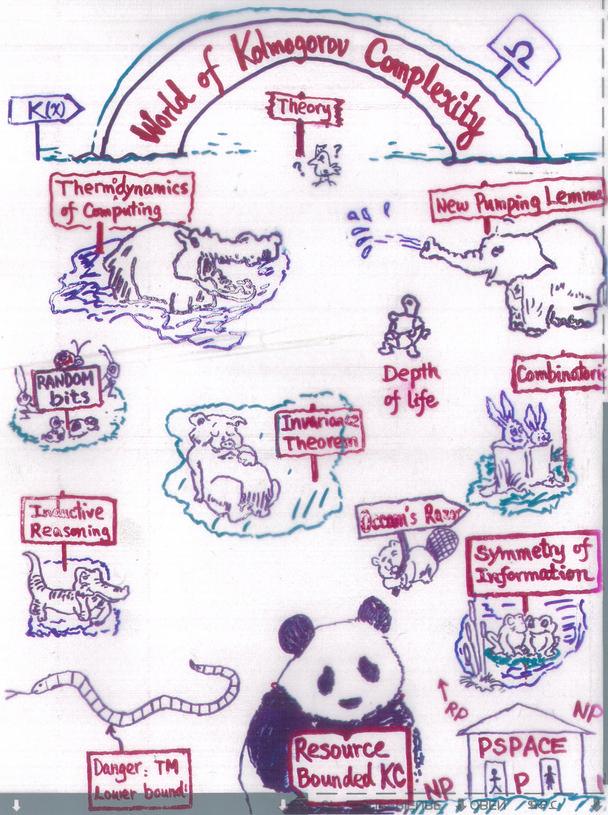 World of Kolmogorov Complexity
Ω
K(x)
Theory
? ?
?
Thermidynamics
of Computing
New Pumping Lemma
RANDOM
bits
Depth
of life
Combinatoric
Invariance
Theorem
Inductive
Reasoning
Occam's Razor
Symmetry of
Information
RP
NP
PSPACE
P
Danger: TM
Lower bound!
Resource
Bounded KC
NP